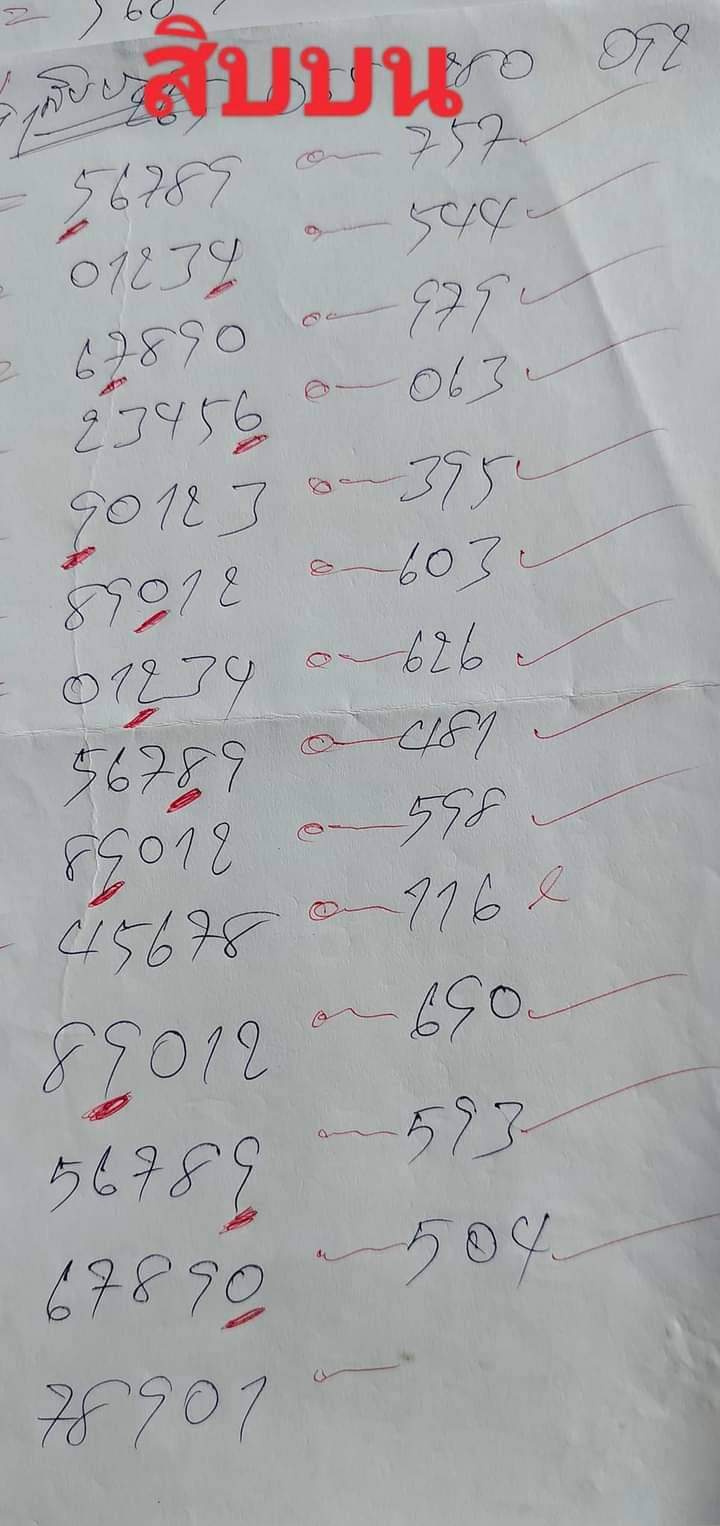 960
สิบบน
80 092
56789 757
01234 544
67890 979
23456 063
90123 395
89012 603
01234 626
56789 481
89012 598
45678 116
89012 690
56789 593
67890 504
78901